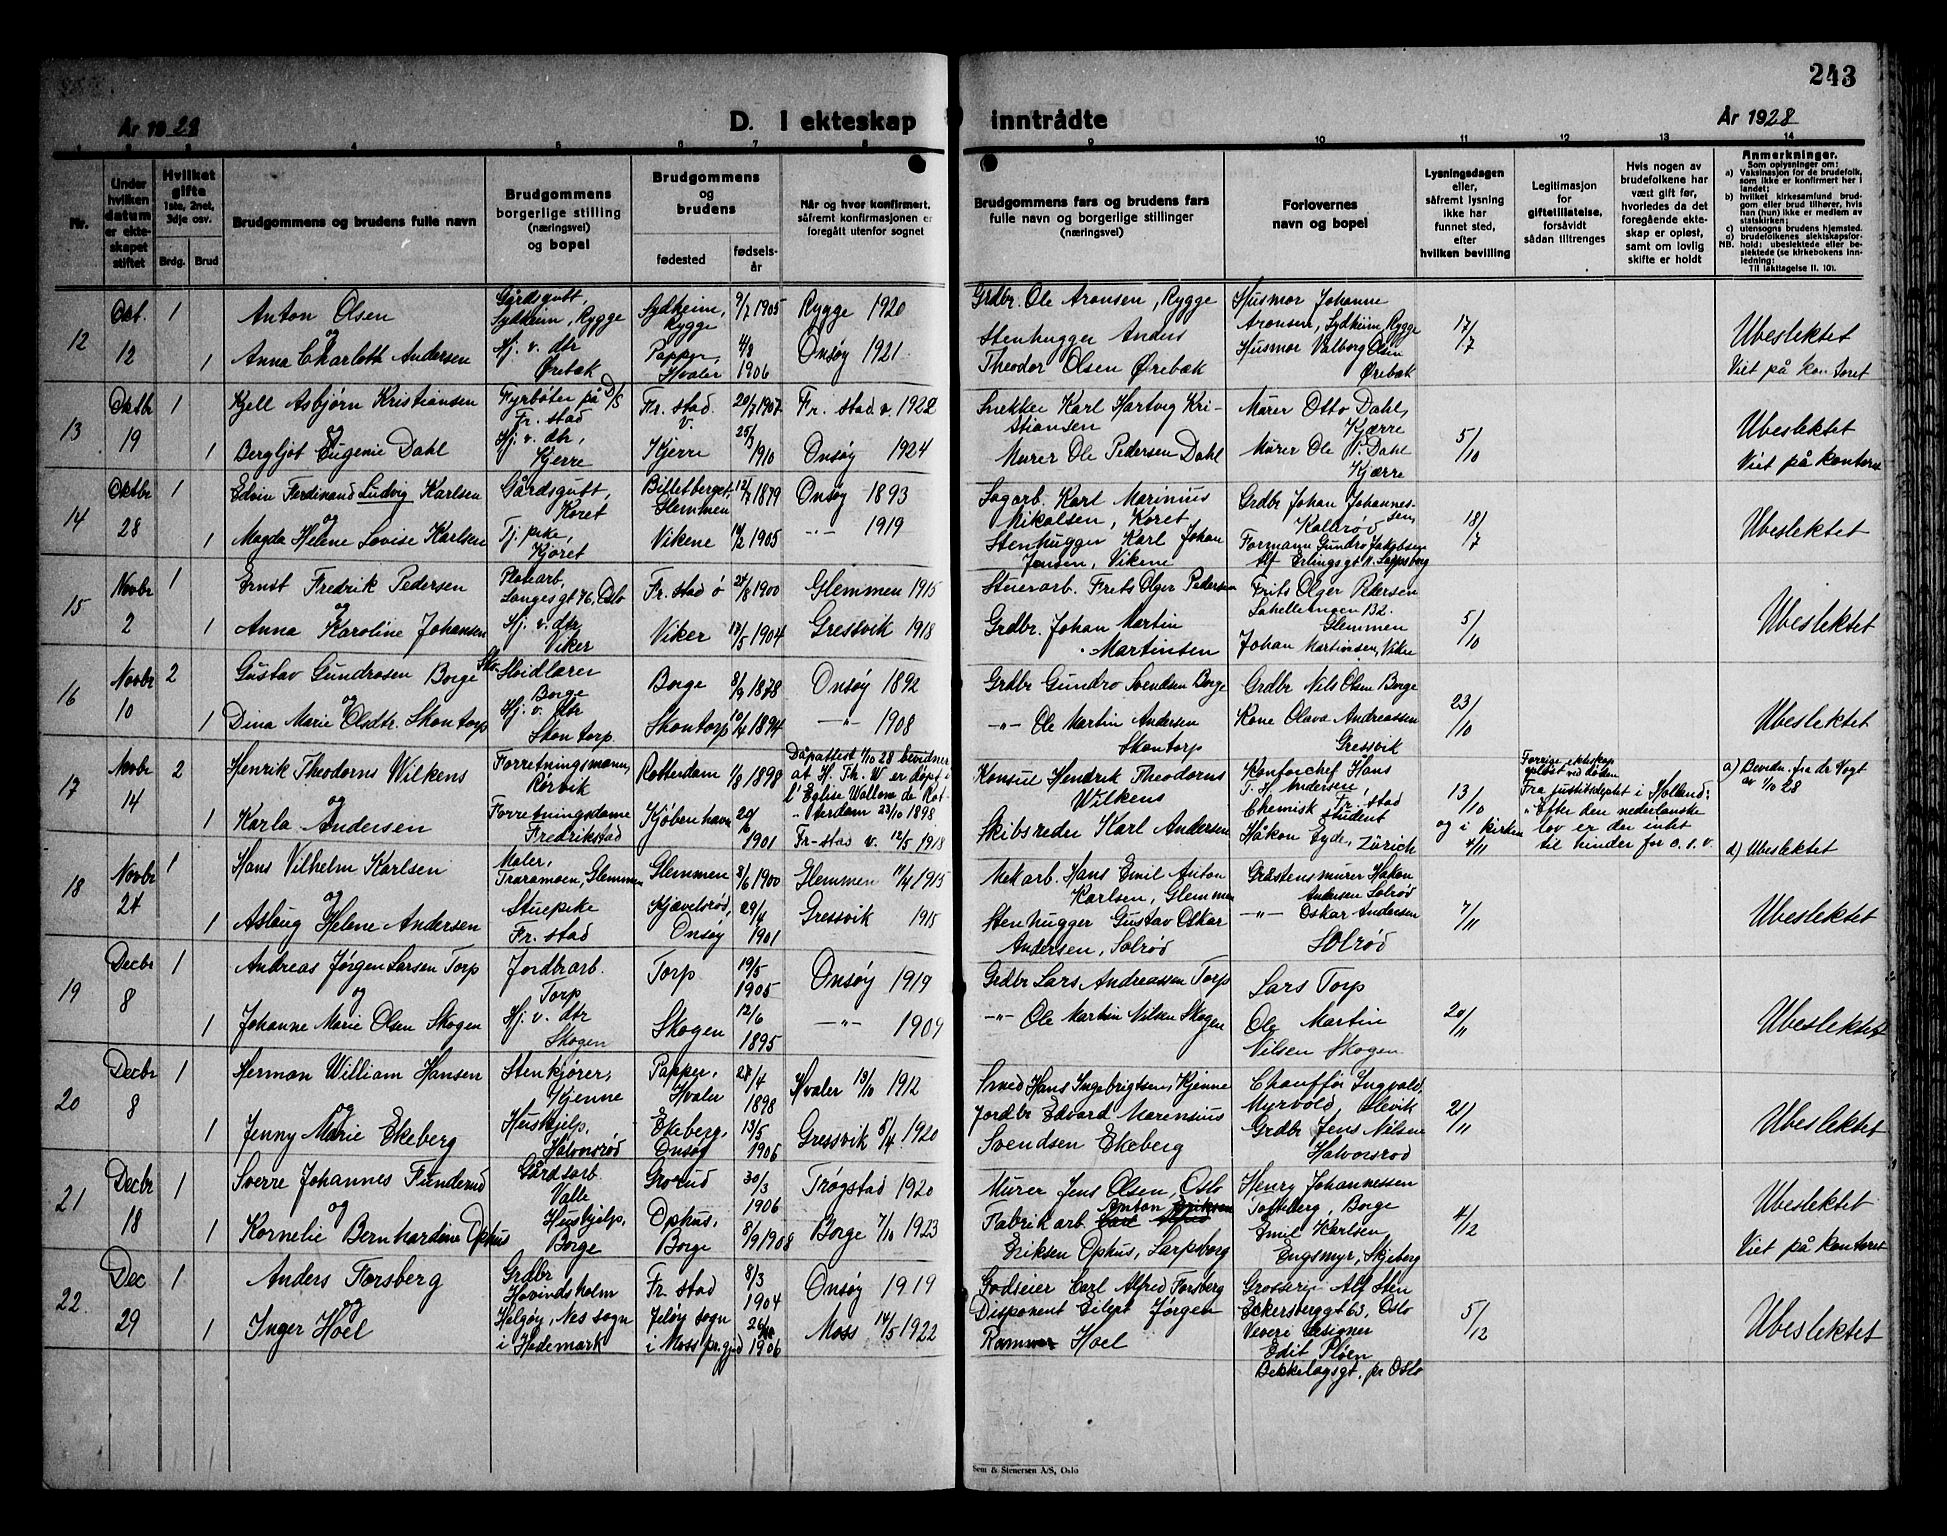 243
År 1928
D. I ekteskap
inntrådte
År 1928
1 2 3 4 5 6 7 8 9 10 11 12 13 14
Nr.
Under hvilken datum er ekteskapet stiftet
Hvilket gifte 1ste, 2net, 3dje osv.
Brdg. Brud
Brudgommens og brudens fulle navn
Brudgommens borgerlige stilling (næringsvei) og bopel
Brudgommens og brudens
fødested
fødselsår
Når og hvor konfirmert, såfremt konfirmasjonen er foregått utenfor sognet
Brudgommens fars og brudens fars fulle navn og borgerlige stillinger (næringsvei)
Forlovernes navn og bopel
Lysningsdagen eller, såfremt lysning ikke har funnet sted, efter hvilken bevilling
Legitimasjon for giftetillatelse, forsåvidt sådan tiltrenges
Hvis nogen av brudefolkene har vært gift før, hvorledes da det foregående ekteskap er opløst, samt om lovlig skifte er holdt
Anmerkninger.
Som oplysninger om:
a) Vaksinasjon for de brudefolk, som ikke er konfirmert her i landet;
b) hvilket kirkesamfund brudgom eller brud tilhører, hvis han (hun) ikke er medlem av statskirken;
c) utensogns brudens hjemsted.
d) brudefolkenes slektskapsforhold: ubeslektede eller beslektede (se kirkebokens innledning:
NB.
Til iakttagelse II. 10).
12
Okt. 12
1
Anton Olsen
og
1
Anna Charlotte Andersen
Gårdsgutt, Sydheim, Rygge
Hj. v. dtr Ørebæk
Sydheim, Rygge 9/7 1905
Papper, Hvaler 4/8 1906
Rygge 1920
Onsøy 1921
Grdbr. Ole Aronsen, Rygge
Stenhugger Anders
Theodor Olsen Ørebæk
Husmor Johanne
Aronsen, Sydheim, Rygge
Husmor Valborg Olsen
Ørebæk
17/7
Ubeslektet
Viet på kontoret
13
Oktbr 19
1
Kjell Asbjørn Kristiansen
og
1
Bergljot Eugenie Dahl
Fyrbøter på D/S
Fr. stad
Hj. v. dtr, Kjerre
Fr. stad v. 20/7 1907
Kjerre 25/3 1910
Fr. stad v. 1922
Onsøy 1924
Snekker Karl Hartvig Kristiansen
Murer Ole Pedersen Dahl
Murer Otto Dahl,
Kjærre
Murer Ole P. Dahl
Kjærre
5/10
Ubeslektet
Viet på kontoret
14
Oktbr 28
1
Edvin Ferdinand Ludvig Karlsen
og
1
Magda Helene Lovise Karlsen
Gårdsgutt, Køret
Tj. pike, Kjøret
Billetberget, Glemmen 12/7 1879
Vikene 14/2 1905
Onsøy 1893
-"- 1919
Sagarb. Karl Marinius
Nikolsen, Køret
Stenhugger Karl Johan
Jensen, Vikene
Grdbr Johan Johannessen,
Kallerød
Formann Gundro Jakobsen
Alf Erlingsgt 11. Sarpsborg
18/7
Ubeslektet
15
Novbr 2
1
Ernst Fredrik Pedersen
og
1
Anna Karoline Johansen
Platearb, Langes gt 76, Oslo
Hj. v. dtr Viker
Fr. stad ø 24/8 1900
Viker 17/5 1904
Glemmen 1915
Gressvik 1918
Stuerarb. Frets Olger Pedersen
Grdbr. Johan Martin
Martinsen
Frits Olger Pedersen
132.
Glemmen
Johan Martinsen, Vikne
5/10
Ubeslektet
16
Novbr 10
2
Gustav Gundrosen Borge
og
1
Dina Marie Olsdtr. Skontorp
Skidlærer Borge
Hj. v. dtr Skontorp.
Borge 8/9 1878
Skontorp 10/4 1894
Onsøy 1892
-"- 1908
Grdbr Gundro Svendsen Borge
-"- Ole Martin Andersen
Skontorp
Grdbr Nils Olsen Borge
Kone Olava Andreassen
Gressvik
23/10
Ubeslektet
17
Novbr 14
2
Henrik Theodorns Wilkens
og
1
Karla Andersen
Forretningsmann, Rørvik
Forretningsdame Fredrikstad
Rotterdam 1/8 1898
Kjøbenhavn 20/6 1901
Dåpattest 1/10 28 bevidner
at H. Th. W er døpt i
l'Eglise Wallone de Rotterdam 23/10 1898
Fr-stad v. 12/5 1918
Konsul Hendrik Theodorns
Wilkens
Skibsreder Karl Andersen
Kontorchef Hans
T. H. Andersen, Fr. stad
Chemisk student
Håkon Eyde, Zürich
13/10
og i kirken
4/11
Forrige ekteskap
opløst ved døden
Fra justitsdeptet i Holland:
"Efter den nederlanske
lov er der intet
til hinder for o. s. v.
a) Bevidn. fra dr Vogt
av 1/10 28
d) Ubeslektet
18
Novbr 24
1
Hans Vilhelm Karlsen
og
1
Aslaug Helene Andersen
Maler, Traramoen, Glemmen
Stuepike Fr. stad
Glemmen 8/6 1900
Kjævelsrød, Onsøy 29/4 1901
Glemmen 11/4 1915
Gressvik 1915
Mek arb. Hans Emil Anton
Karlsen, Glemmen
Stenhugger Gustav Oskar
Andersen, Solrød
Gråstensmurer Håkon
Andersen Solrød
-"- Oskar Andersen
Solrød
7/11
Ubeslektet
19
Decbr 8
1
Andreas Jørgen Larsen Torp
og
1
Johanne Marie Olsen Skogen
Jordbrarb. Torp
Hj. v. dtr Skogen
Torp 19/5 1905
Skogen 12/6 1895
Onsøy 1919
-"- 1909
Grdbr Lars Andreassen Torp
-"- Ole Martin Nilsen Skogen
Lars Torp
Ole Martin
Nilsen Skogen
20/11
Ubeslektet
20
Decbr 8
1
Herman William Hansen
og
1
Jenny Marie Ekeberg
Stenkjører, Kjenne
Huskjelp, Halvorsrød
Papper, Hvaler 28/4 1898
Ekeberg, Onsøy 13/5 1906
Hvaler 13/10 1912
Gressvik 5/4 1920
Smed Hans Ingebrigtsen, Kjenne
Jordbr Edvard Marensius
Svendsen Ekeberg
Chauffør Ingvald,
Myrvold Slevik
Grdbr Jens Nilsen
Halvorsrød
21/11
Ubeslektet
21
Decbr 18
1
Sverre Johannes Funderud
og
1
Kornelie Bernhardine Ophus
Gårdsarb. Valle
Huskjelp, Borge
Grorud 30/3 1906
Ophus, Borge 8/9 1908
Trøgstad 1920
Borge 7/10 1923
Murer Jens Olsen, Oslo
Fabrikarb. Anton
Eriksen Ophus, Sarpsborg
Henry Johannessen
Tofteberg, Borge
Emil Karlsen
Engsmyr, Skjeberg
4/12
Ubeslektet
Viet på kontoret
22.
Dec 29
1
Anders Forsberg
og
1
Inger Hoel
Grdbr Hovindsholm
Helgøy, Nes sogn i Hedemark
Fr. stad 8/3 1904
Jeløy sogn i Moss pr.gjeld 1906
Onsøy 1919
Moss 14/5 1922
Godseier Carl Alfred Forsberg
Disponent Eilept Jørgen
Hoel
Grosserer Alf Sten
Eckersberggt 63, Oslo
Edit Pløen
Bekkelagsgt. pr Oslo
5/12
Ubeslektet
Sem & Stenersen A/S, Oslo